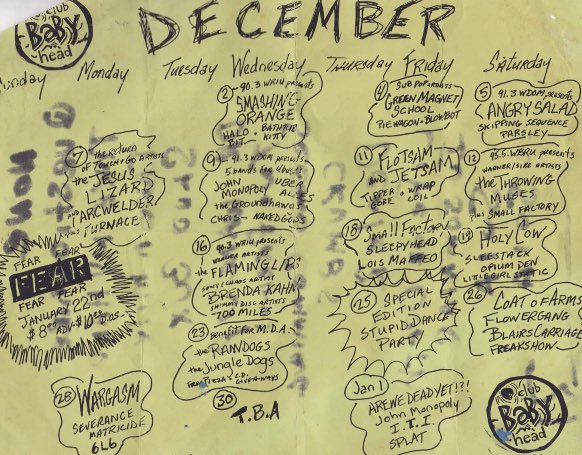 club
BABY
head
DECEMBER
Monday
Tuesday
Wednesday
Thursday
Friday
Saturday
2 90.3 WRIU presents
SMASHING
ORANGE
HALO
BIT
KITTY
4 SUB POP artists
GREEN MAGNET
SCHOOL
PIEWAGON BLOWBOT
5 91.3 WDOM presents
ANGRY SALAD
SKIPPING SEQUENCE
PARSLEY
7 the RETURN
OF TOUCH & GO ARTISTS
the JESUS
LIZARD
AND TARWELDER
FURNACE
9 91.3 WDOM presents
5 bands for 5 bucks
JOHN UBER
MONOPOLY
the GROUNDHAWGS
CHRIS NAKED GODS
11 FLOTSAM
AND JETSAM
TIPPER WRAP
GORE COIL
12 95.5 WBRU presents
WARNER/SIRE ARTISTS
the THROWING
MUSES
plus SMALL FACTORY
16 90.3 WRIU presents
WARNER ARTISTS
the FLAMING LIPS
BRENDA KAHN
SHIMMY DISC ARTISTS
TOO MILES
18 Small Factory
SLEEPYHEAD
LOIS MAFFEO
19 HOLY COW
SLEESTACK
OPIUM DEN
LITTLE GIRL STATIC
FEAR FEAR
FEAR
FEAR FEAR
JANUARY 22nd
$8.00 ADV. $10.00 D.O.S.
23 Benefit for M.D.A.
the RAINDOGS
the Jungle Dogs
FREE PIZZA & C.D. GIVE-AWAYS
25 SPECIAL
EDITION
STUPID DANCE
PARTY
26 COAT OF ARMS
FLOWERGANG
BLAIRS CARRIAGE
FREAKSHOW
28 WARGASM
SEVERANCE
MATRICIDE
6L6
30
T.B.A
Jan 1
ARE WE DEAD YET!?!
John Monopoly
I.T.I.
SPLAT
club
BABY
head